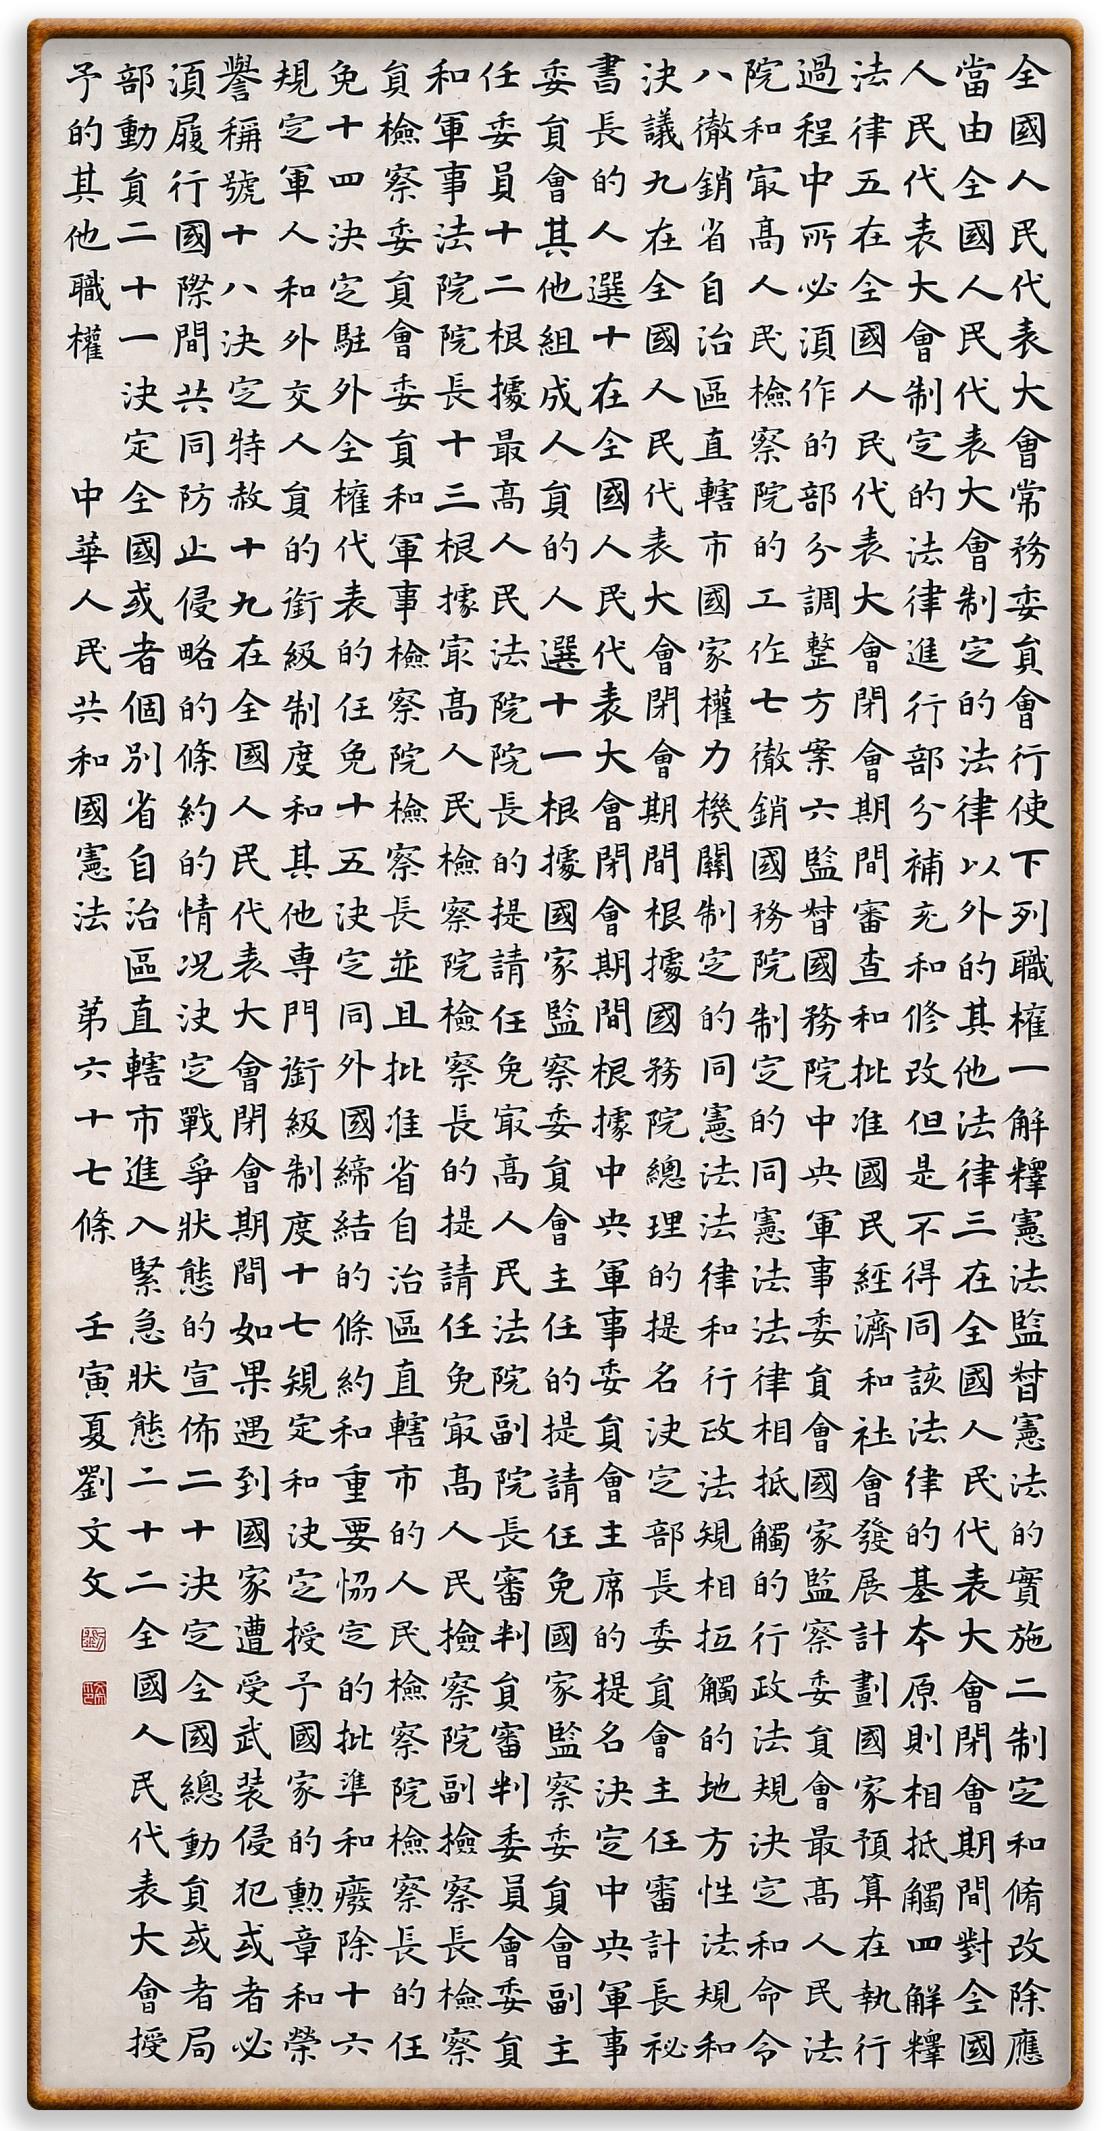 全國人民代表大會常務委員會行使下列職權一解釋憲法監督憲法的實施二制定和脩改除應
當由全國人民代表大會制定的法律以外的其他法律三在全國人民代表大會閉會期間對全國
人民代表大會制定的法律進行部分補充和修改但是不得同該法律的基本原則相抵觸四解釋
法律五在全國人民代表大會閉會期間審查和批准國民經濟和社會發展計劃國家預算在執行
過程中所必須作的部分調整方案六監督國務院中央軍事委員會國家監察委員會最高人民法
院和最高人民檢察院的工作七徹銷國務院制定的同憲法法律相抵觸的行政法規決定和命令
八徹銷省自治區直轄市國家權力機關制定的同憲法法律和行政法規相抵觸的地方性法規和
決議九在全國人民代表大會閉會期間根據國務院總理的提名決定部長委員會主任審計長秘
書長的人選十在全國人民代表大會閉會期間根據中央軍事委員會主席的提名決定中央軍事
委員會其他組成人員的人選十一根據國家監察委員會主任的提請任免國家監察委員會副主
任委員十二根據最高人民法院院長的提請任免最高人民法院副院長審判員審判委員會委員
和軍事法院院長十三根據最高人民檢察院檢察長的提請任免最高人民撿察院副撿察長檢察
員檢察委員會委員和軍事檢察院檢察長並且批准省自治區直轄市的人民檢察院檢察長的任
免十四決定駐外全權代表的任免十五決定同外國締結的條約和重要協定的批準和廢除十六
規定軍人和外交人員的銜級制度和其他專門銜級制度十七規定和決定授予國家的勳章和榮
譽稱號十八決定特赦十九在全國人民代表大會閉會期間如果遇到國家遭受武装侵犯或者必
須履行國際間共同防止侵略的條約的情況決定戰爭狀態的宣佈二十決定全國總動員或者局
部動員二十一決定全國或者個別省自治區直轄市進入緊急狀態二十二全國人民代表大會授
予的其他職權 中華人民共和國憲法 第六十七條 壬寅夏劉文文